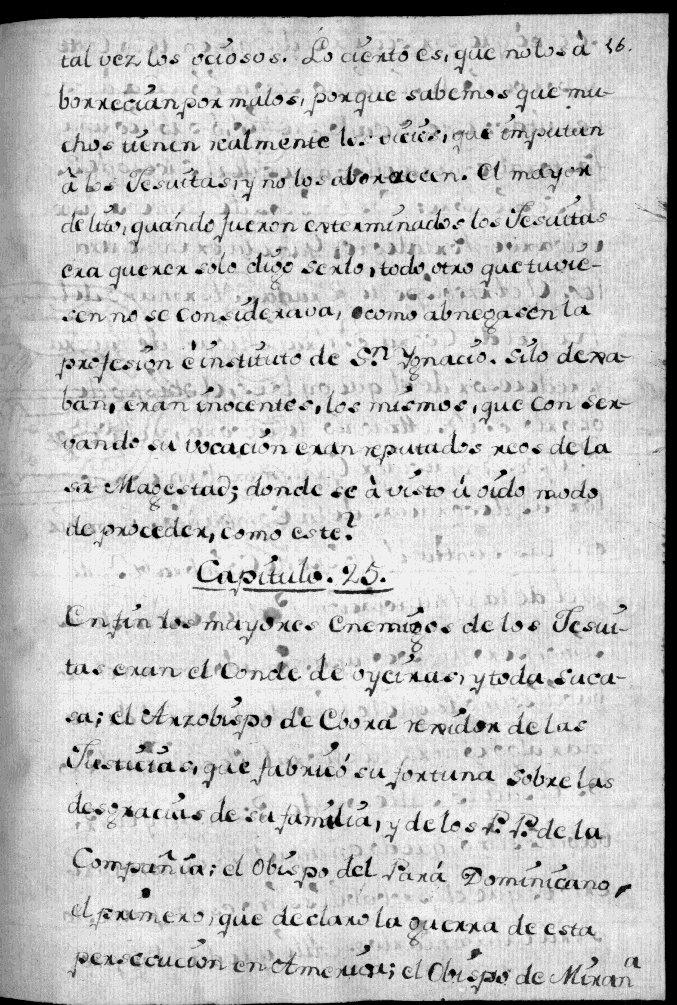 tal vez los ociosos. Lo cierto es, que no los à 16.
borrecian por malos, porque sabemos que mu-
chos tienen realmente los vicios, que imputan
à los Jesuitas, y no los aborrecen. El mayor
delito, quándo fueron exterminados los Jesuitas
era querer solo digo serlo, todo otro que tuvie-
sen no se considerava, como abnegasen la
profesion è instituto de Sn. Ygnacio. Silo dexa-
ban, eran inocentes, los mismos, que con ser-
vando su vocación eran reputados reos de la
sa Magestad; donde se à visto ù oido modo
de proceder, como este?
Capítulo. 25.
En fin los mayores Enemigos de los Jesui-
tas eran el Conde de oyeiras, y toda su ca-
sa; el Arzobispo de Coora de las
Jesuitas, que fabricó su fortuna sobre las
desgracias de su familia, y de los P. P. de la
Compañia; el Obispo del Pará Dominicano,
el primero, que declaro la guerra de esta
persecucion en America; el Obispo de Mirana